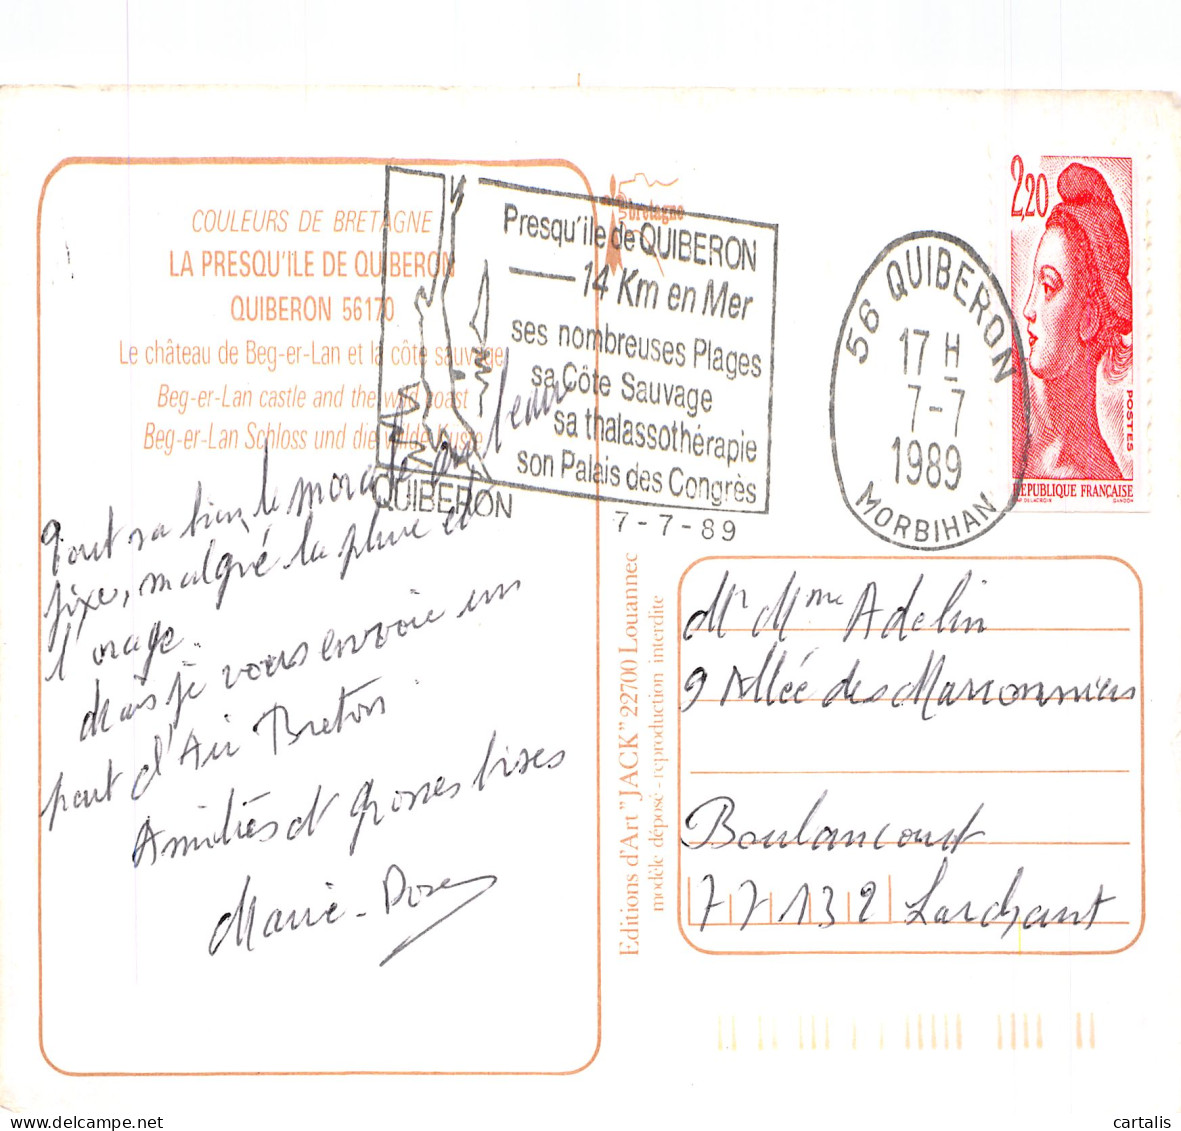 COULEURS DE BRETAGNE
LA PRESQU'ILE DE QUIBERON
QUIBERON 56170
Le château de Beg-er-Lan et la côte sauvage
Beg-er-Lan castle and the wild coast
Beg-er-Lan Schloss und die wilde Küste
Tout va bien, le moral est au beau
fixe, malgré la pluie et
l'orage.
Mais je vous envoie un
peut d'Air Breton
Amitiés et grosses bises
Marie-Rose
QUIBERON
Presqu'ile de QUIBERON
14 Km en Mer
ses nombreuses Plages
sa Côte Sauvage
sa thalassothérapie
son Palais des Congrès
7-7-89
bretagne
56 QUIBERON
17 H
7-7
1989
MORBIHAN
2,20
POSTES
RÉPUBLIQUE FRANÇAISE
D'AP. DELACROIX GANDON
Editions d'Art "JACK" 22700 Louannec
modèle déposé - reproduction interdite
Mr Mme Adelin
9 Allée des Marronniers
Boulancourt
77132 Larchant
cartalis